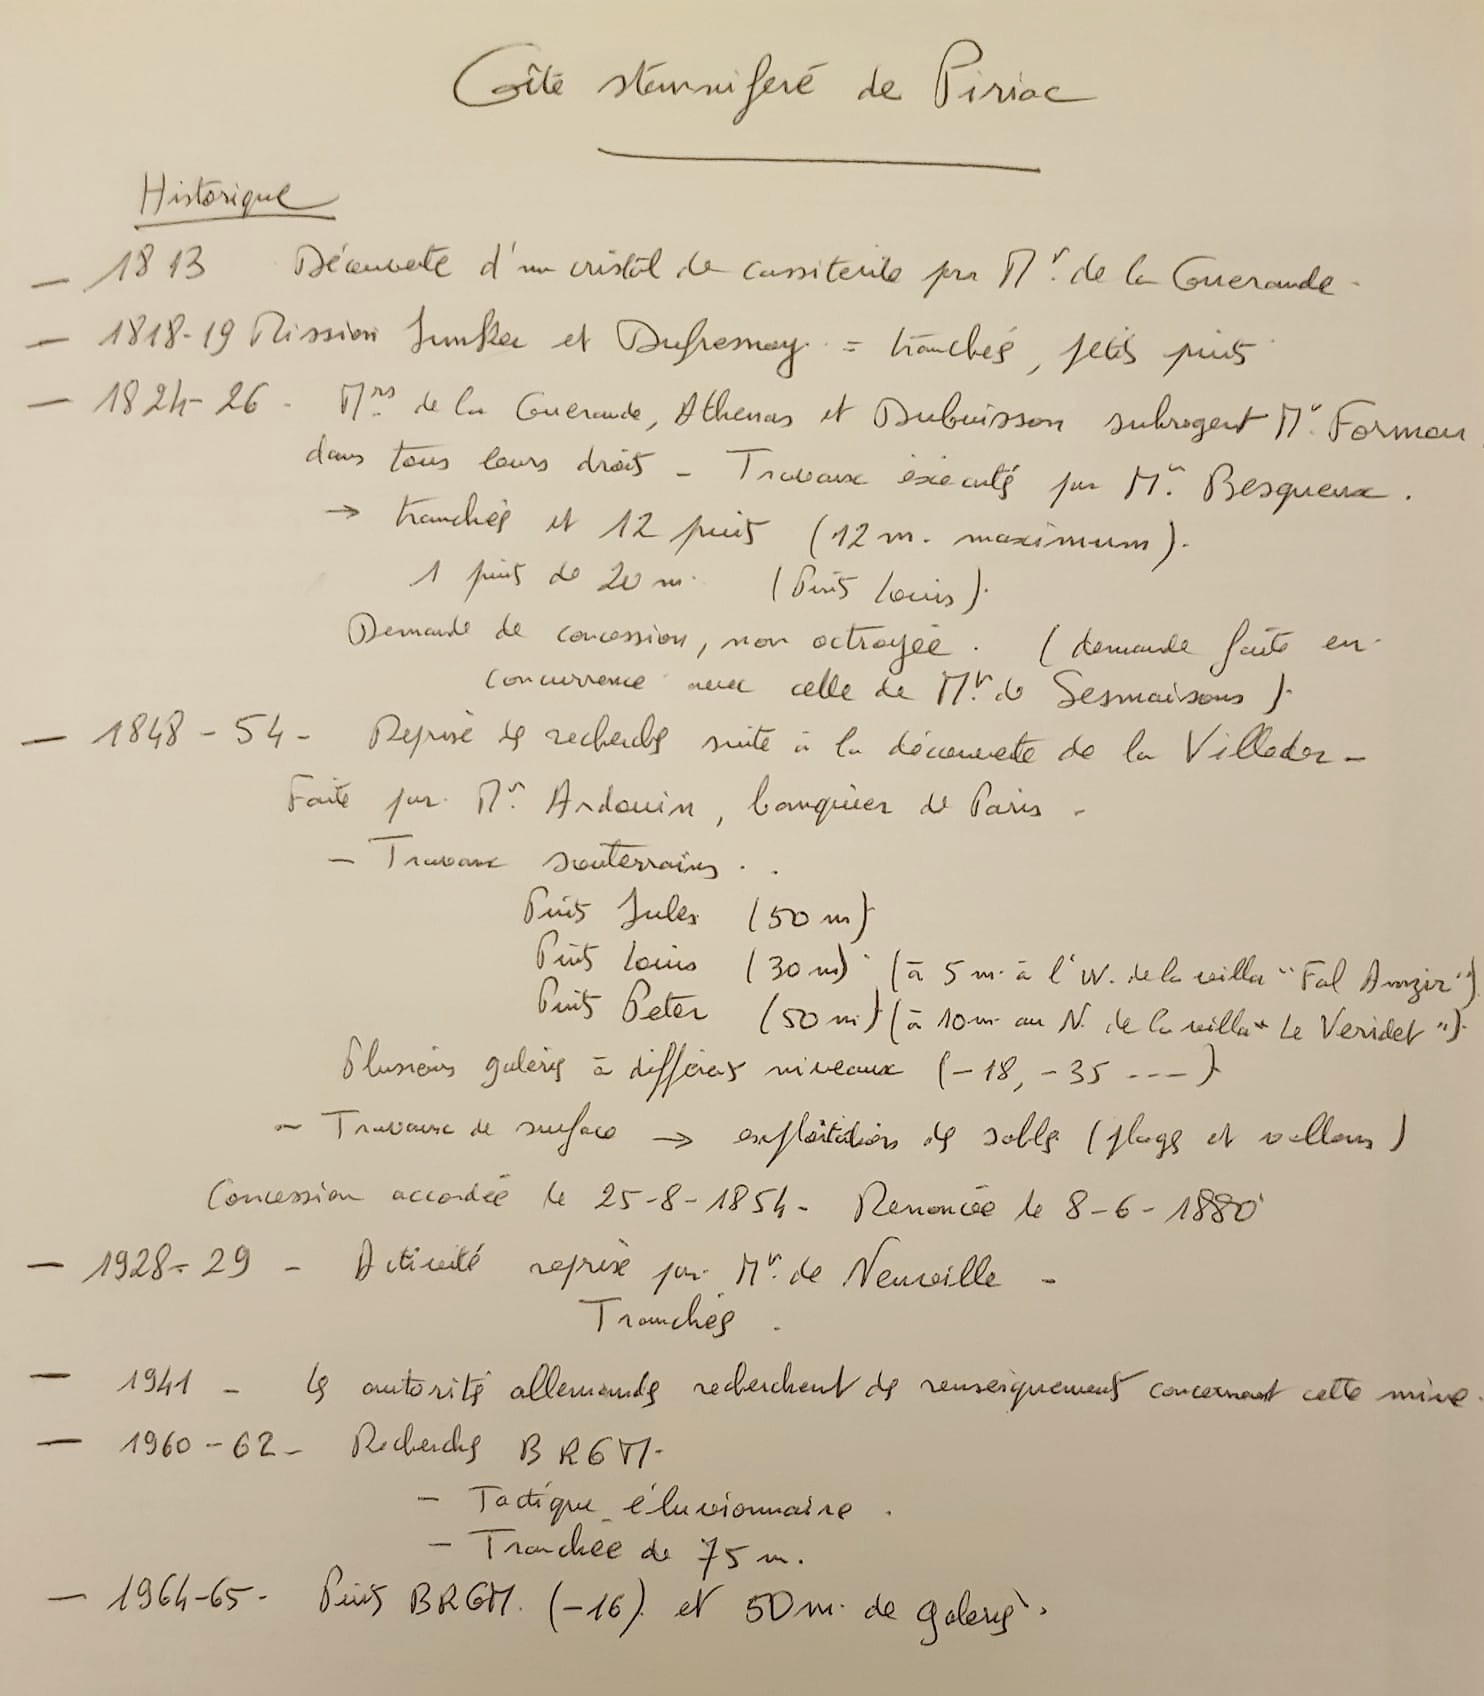 Gîte stannifère de Piriac
Historique
— 1813 Découverte d'un cristal de cassiterite par Mr. de la Guerande.
— 1818-19 Mission Junker et Dufresnoy = tranchés, petits puits
— 1824-26. Mrs de la Guerande, Athenas et Dubuisson subrogent Mr. Formon
dans tous leurs droits - Travaux éxécutés par Mr. Besqueux.
→ tranchés et 12 puits (12 m. maximum).
1 puits de 20 m. (Puits Louis).
Demande de concession, non octroyée. (demande faite en
concurrence avec celle de Mr. de Sesmaisons).
— 1848-54 - Reprise des recherches suite à la découverte de la Villeder -
Faite par Mr. Ardouin, banquier de Paris -
- Travaux souterrains.
Puits Jules (50 m)
Puits Louis (30 m) (à 5 m. à l'W. de la villa "Fal Amzir")
Puits Peter (50 m.) (à 10 m au N. de la villa "Le Veridet").
Plusieurs galeries à différents niveaux (-18, -35 ---)
- Travaux de surface → exploitation des sables (plages et vallons)
Concession accordée le 25-8-1854 - Renoncée le 8-6-1880
— 1928-29 - Activité reprise par Mr. de Neuville -
Tranchées.
— 1941 - les autorités allemandes recherchent des renseignements concernant cette mine.
— 1960-62 - Recherches BRGM.
- Tactique éluvionnaire.
- Tranchée de 75 m.
— 1964-65 - Puits BRGM. (-16). et 50 m. de galeries.